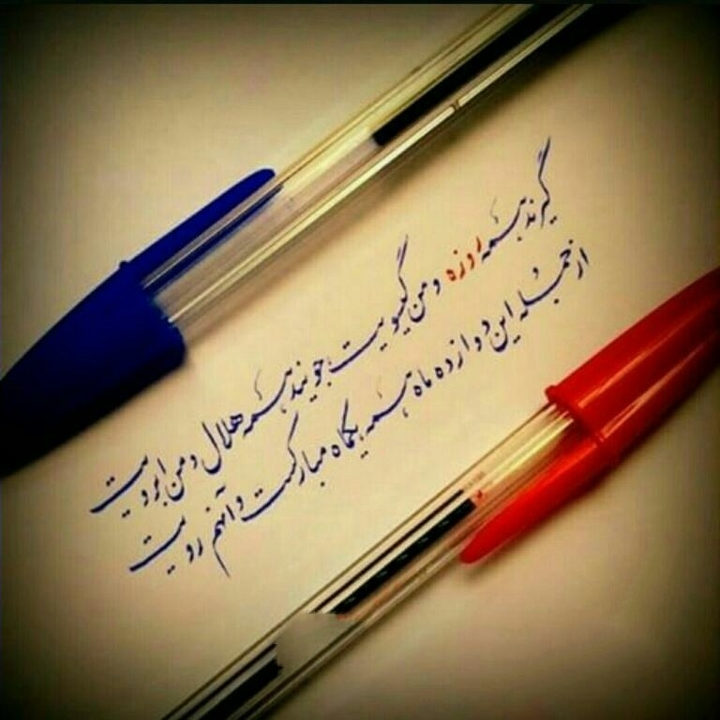 گیرند همه روزه و من گیسویت جویند همه هلال و من ابرویت
از جمله این دوازده ماه همه یکماه مبارکست و آنهم رویت